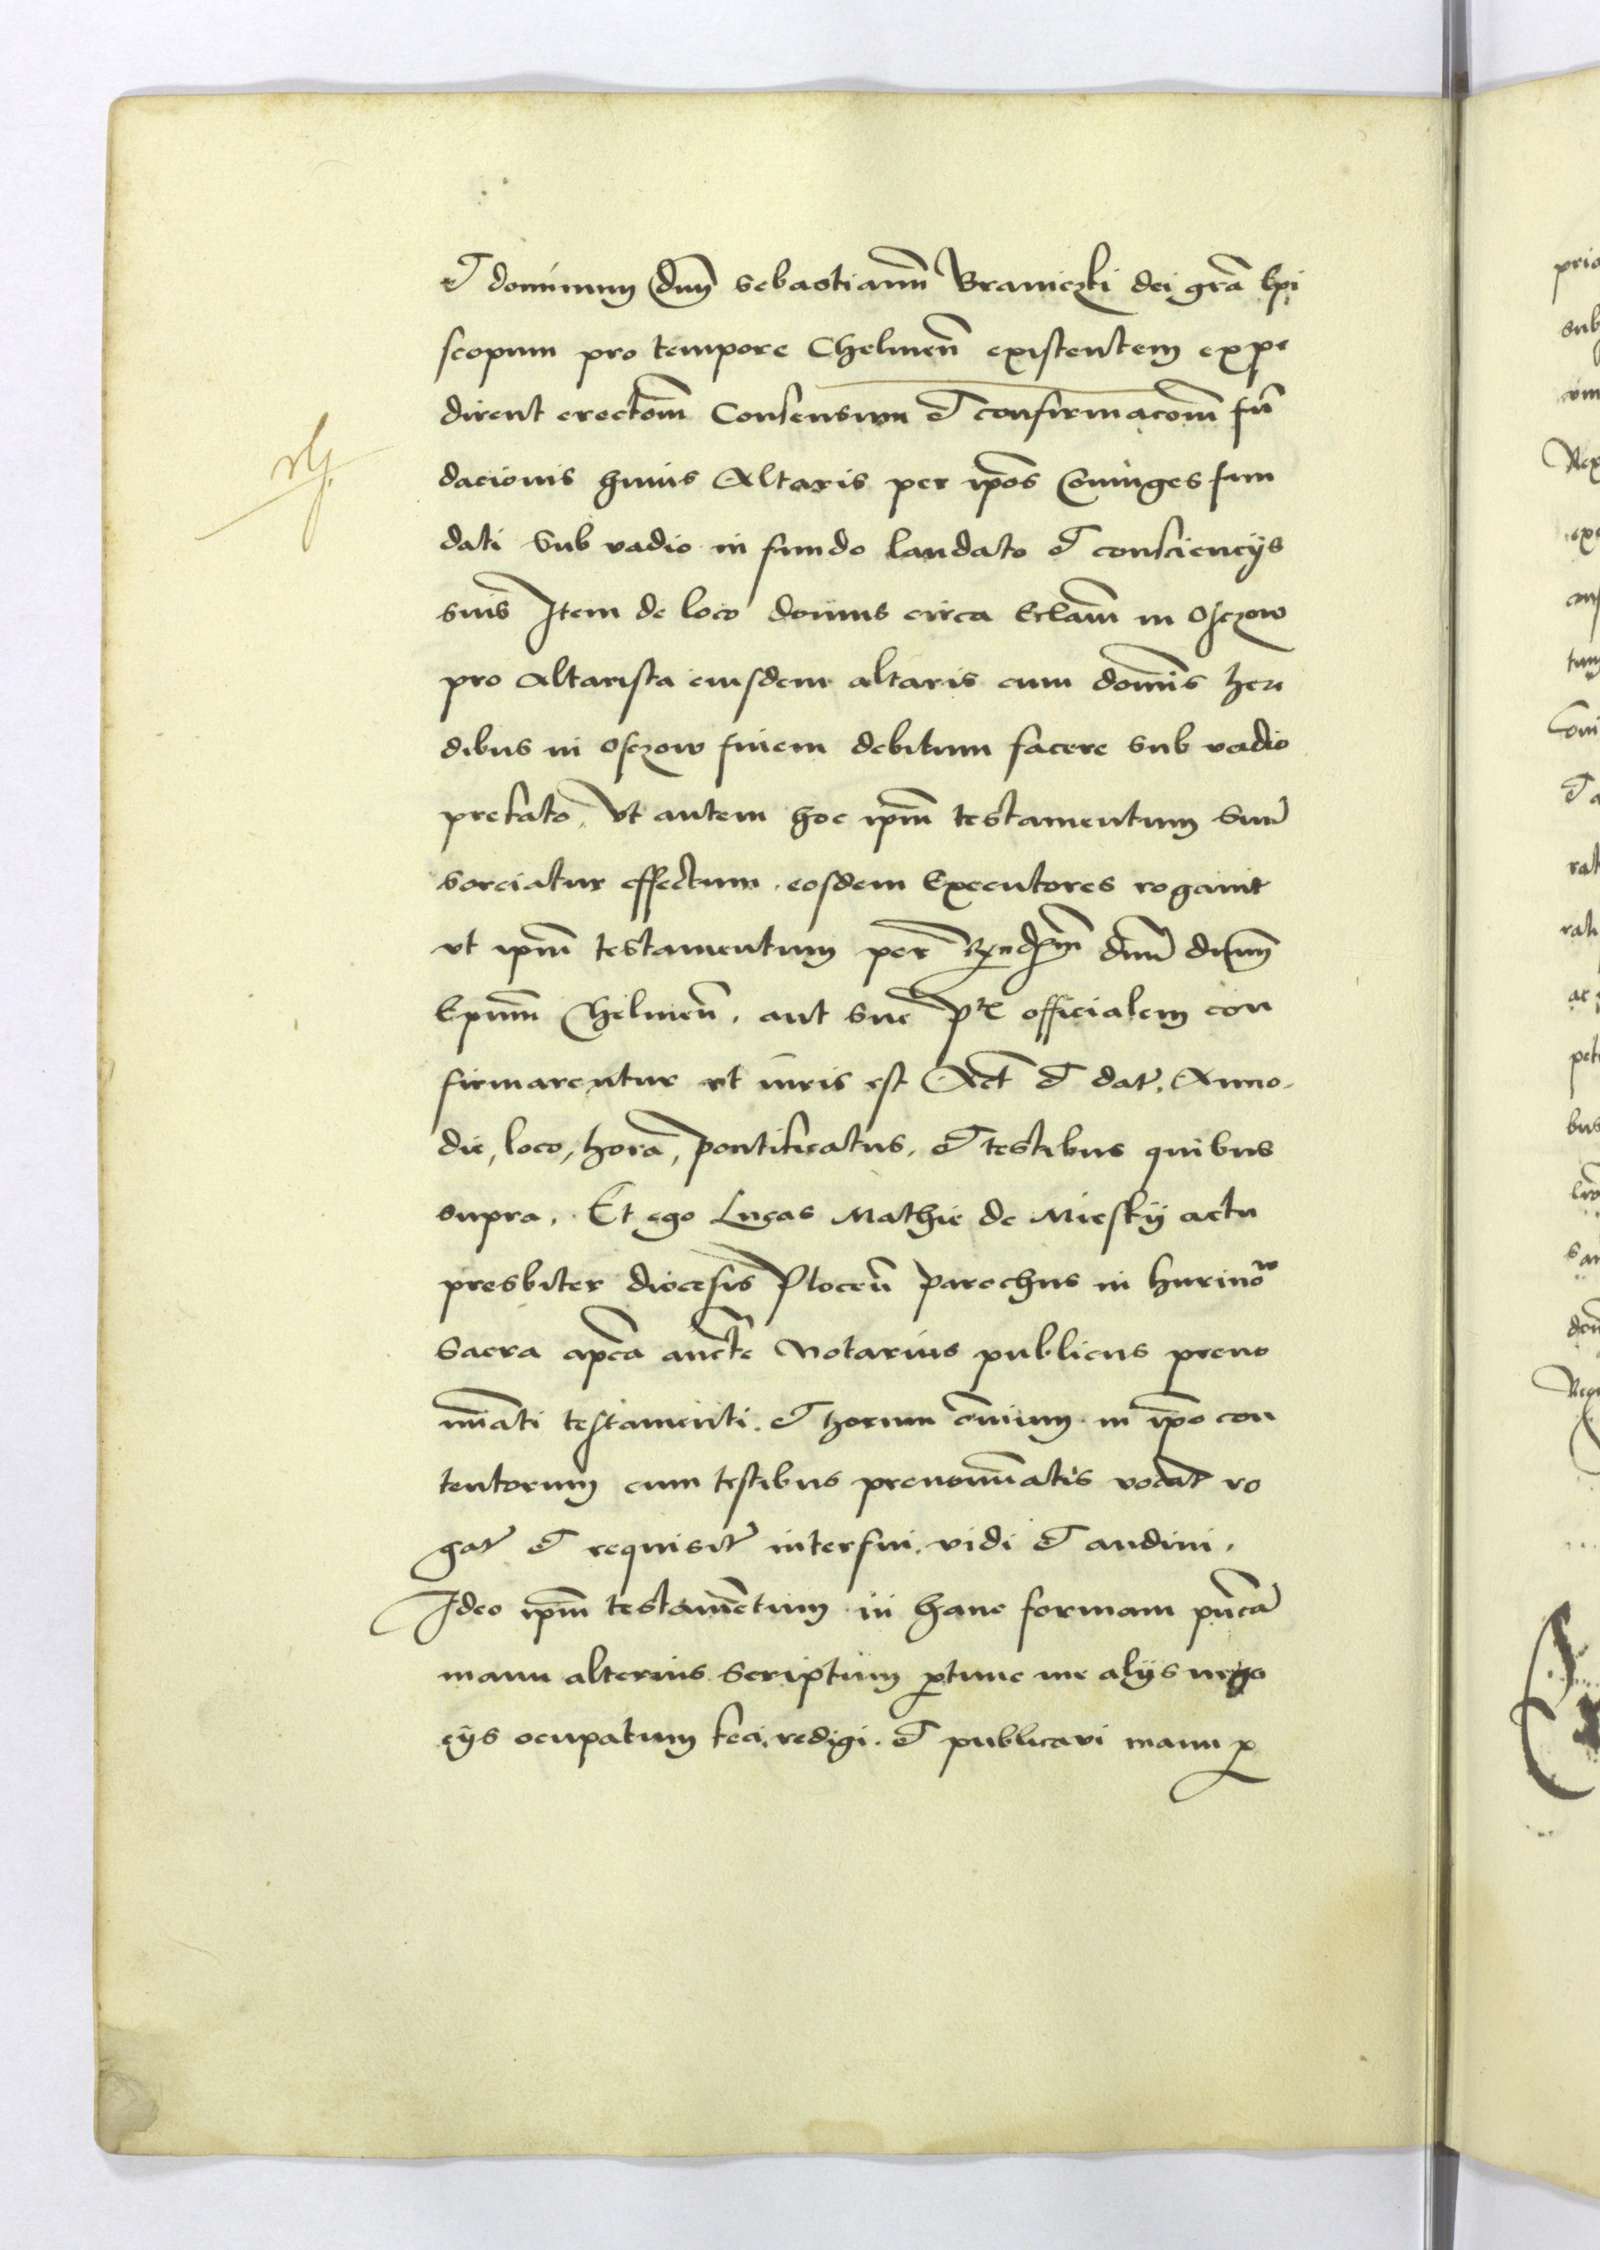 et dominum dnm̄ Sebastianum Braniczki dei grā Epi
scopum pro tempore Chelmen̄ existentem expe
dirent erectōm Consensum et confirmacōm fū
dacionis huius Altaris per ip̄os Coniuges fun
dati Sub vadio in fundo laudato et consciencijs
suis Item de loco domus circa Ecclam̄ in Osczow
pro Altarista eiusdem altaris cum domīs here
dibus in Osczow finem debitum facere sub vadio
prefato, Ut autem hoc ip̄m testamentum Suum
sorciatur effectum. eosdem Executores rogauit
ut ip̄m testamentum per Rndm̄ dnm̄ dnm̄
Ep̄um Chelmen̄. aut sue ptis officialem con
firmarentur ut iuris est Act̄ et dat̄. Anno.
die, loco, hora, pontificatus, et testibus quibus
supra. Et ego Lucas Mathie de Miesky actu
presbiter diocesis Plocen̄ parochus in Hurinow
Sacra ap̄ca aucte Notarius publicus preno
minati testamenti. et horum om̄ium in ip̄o con
tentorum cum testibus prenominatis vocat̄ ro
gat̄ et requisit̄ interfui. vidi et audiui.
Ideo ip̄m testamētum in hanc formam publicā
manu alterius Scriptum ꝑtunc me alijs nego
cijs ocupatum feci. redigi. et publicavi manu ꝓ